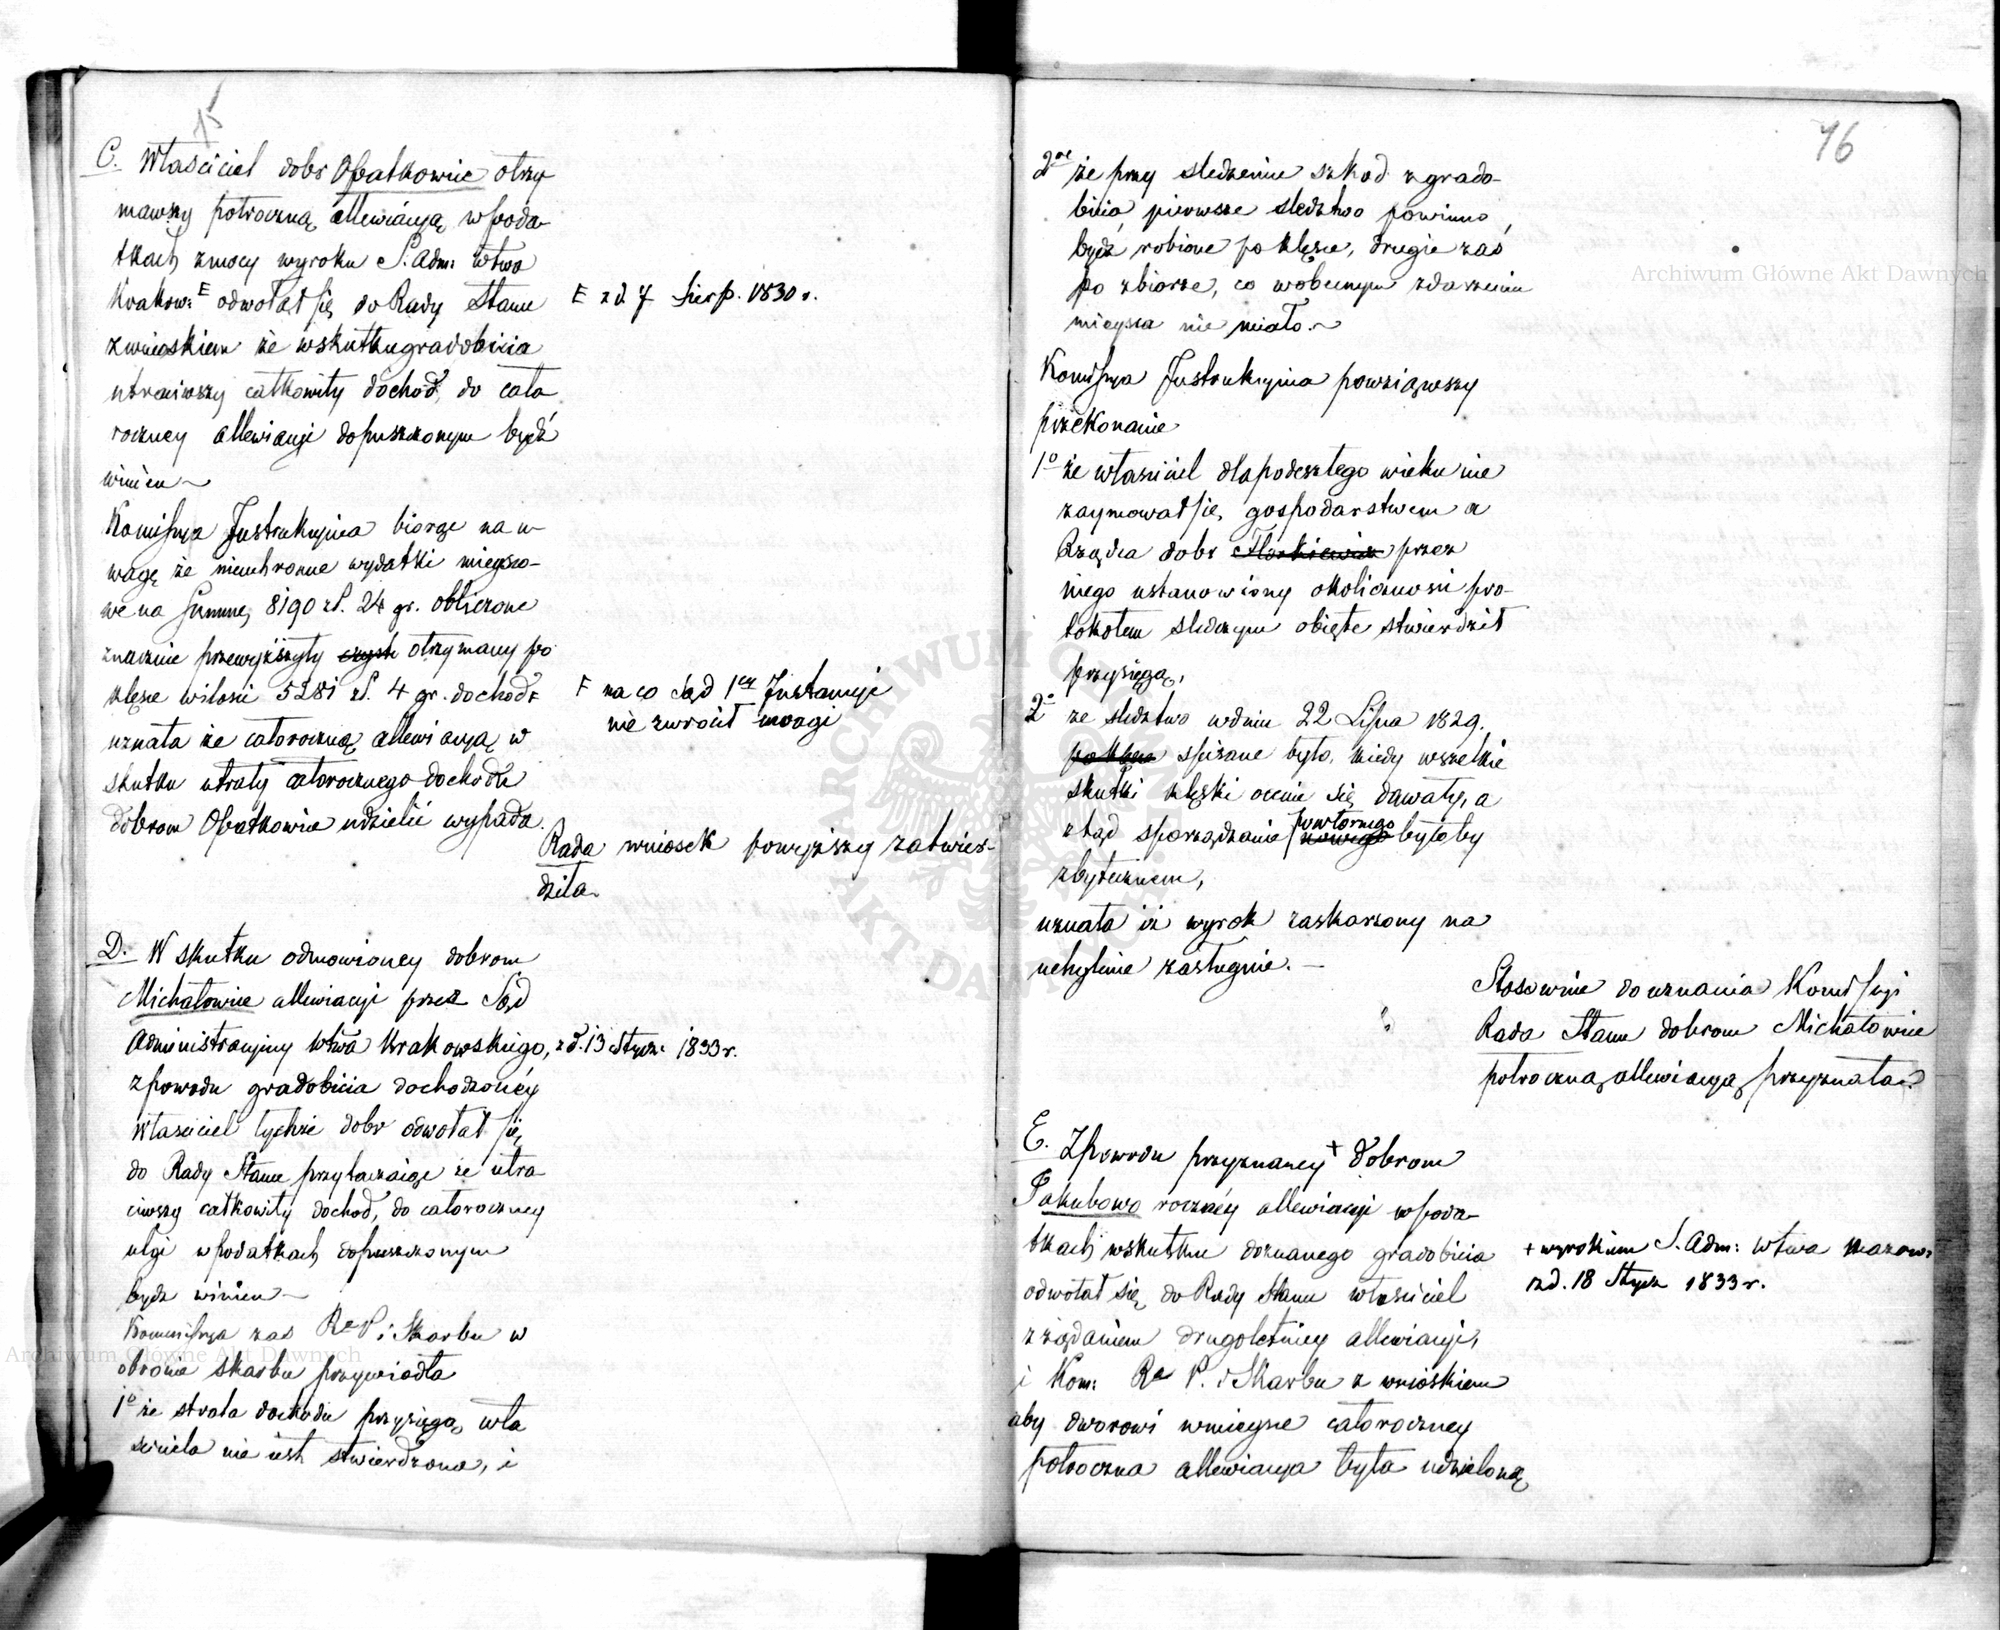 15
C. Właściciel dobr Opatkowice otrzy
mawszy połroczną allewiacyą w poda
tkach zmocy wyroku S. Adm: Wtwa
Krakow: E odwołał się do Rady Stanu
E z d. 7 Sierp. 1830 r.
zwnioskiem że wskutku gradobicia
utraciwszy całkowity dochod, do cało
roczney allewiacyi dopuszczonym bydź
winien ~
Komissya Instrukcyina biorąc na u-
wagę że nieuchronne wydatki mieysco-
we na summę 8190 zł. 24 gr. obliczone
znacznie przewyższyły otrzymany po
klęsce w ilości 5281 zł. 4 gr. dochod F
F na co Sąd 1ey Instancyi
nie zwrócił uwagi
uznała że całoroczną allewiacyą w
skutku utraty całorocznego dochodu
dobrom Opatkowice udzielić wypada.
Rada wniosek powyższy zatwier-
dziła.
D. W skutku odmowioney dobrom
Michałowice allewiacyi przez Sąd
Administracyiny Wtwa Krakowskiego, z d. 13 Stycz: 1833 r.
z powodu gradobicia dochodzoney
Właściciel tychże dobr odwołał się
do Rady Stanu przytaczaiąc że utra
ciwszy całkowity dochod, do całoroczney
ulgi w podatkach dopuszczonym
bydz winien —
Kommissya zas R. P. i Skarbu w
obronie skarbu przywiodła
1o że strata dochodu przysięgą wła
sciciela nie iest stwierdzona, i
76
2re że przy sledzeniu szkod z grado-
bicia, pierwsze sledztwo powinno
bydź robione po klęsce, drugie zaś
po zbiorze, co wobecnym zdarzeniu
mieysca nie miało. ~
Komissya Instrukcyina powziąwszy
przekonanie
1o że własciciel dla podeszłego wieku nie
zaymował się gospodarstwem a
Rządca dobr przez
niego ustanowiony okoliczności pro-
tokołem sledczym obięte stwierdził
przysięgą,
2o ze sledztwo w dniu 22 Lipca 1829.
spisane było, kiedy wszelkie
skutki klęski ocenić się dawały, a
ztąd sporządzanie powtornego byłoby
zbytecznem,
uznała iż wyrok zaskarzony na
uchylenie zasługuie. —
Stosownie do uznania Komissyi
Rada Stanu dobrom Michałowice
połroczną allewiacyą przyznała.
E. Zpowodu przyznaney + dobrom
Jakubowo roczney allewiacyi w poda-
tkach wskutku doznanego gradobicia
+ wyrokiem S. Adm: Wtwa Mazow:
z d. 18 Stycz 1833 r.
odwołał się do Rady Stanu własciciel
z ządaniem drugoletniey allewiacyi,
i Kom: R. P. i Skarbu z wnioskiem
aby dworowi wmieysce całoroczney
połroczna allewiacya była udzieloną
Archiwum Główne Akt Dawnych
Archiwum Główne Akt Dawnych
ARCHIWUM GŁÓWNE AKT DAWNYCH